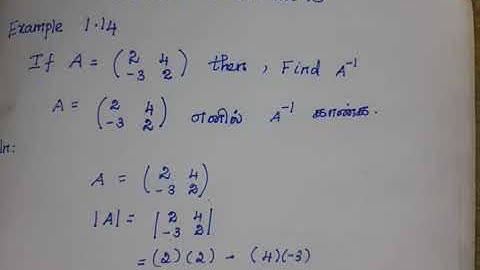 Example 1.14
If A = (2 4 -3 2) then, Find A⁻¹
A = (2 4 -3 2) எனில் A⁻¹ காண்க.
ln:
A = (2 4 -3 2)
|A| = |2 4 -3 2|
= (2)(2) - (4)(-3)